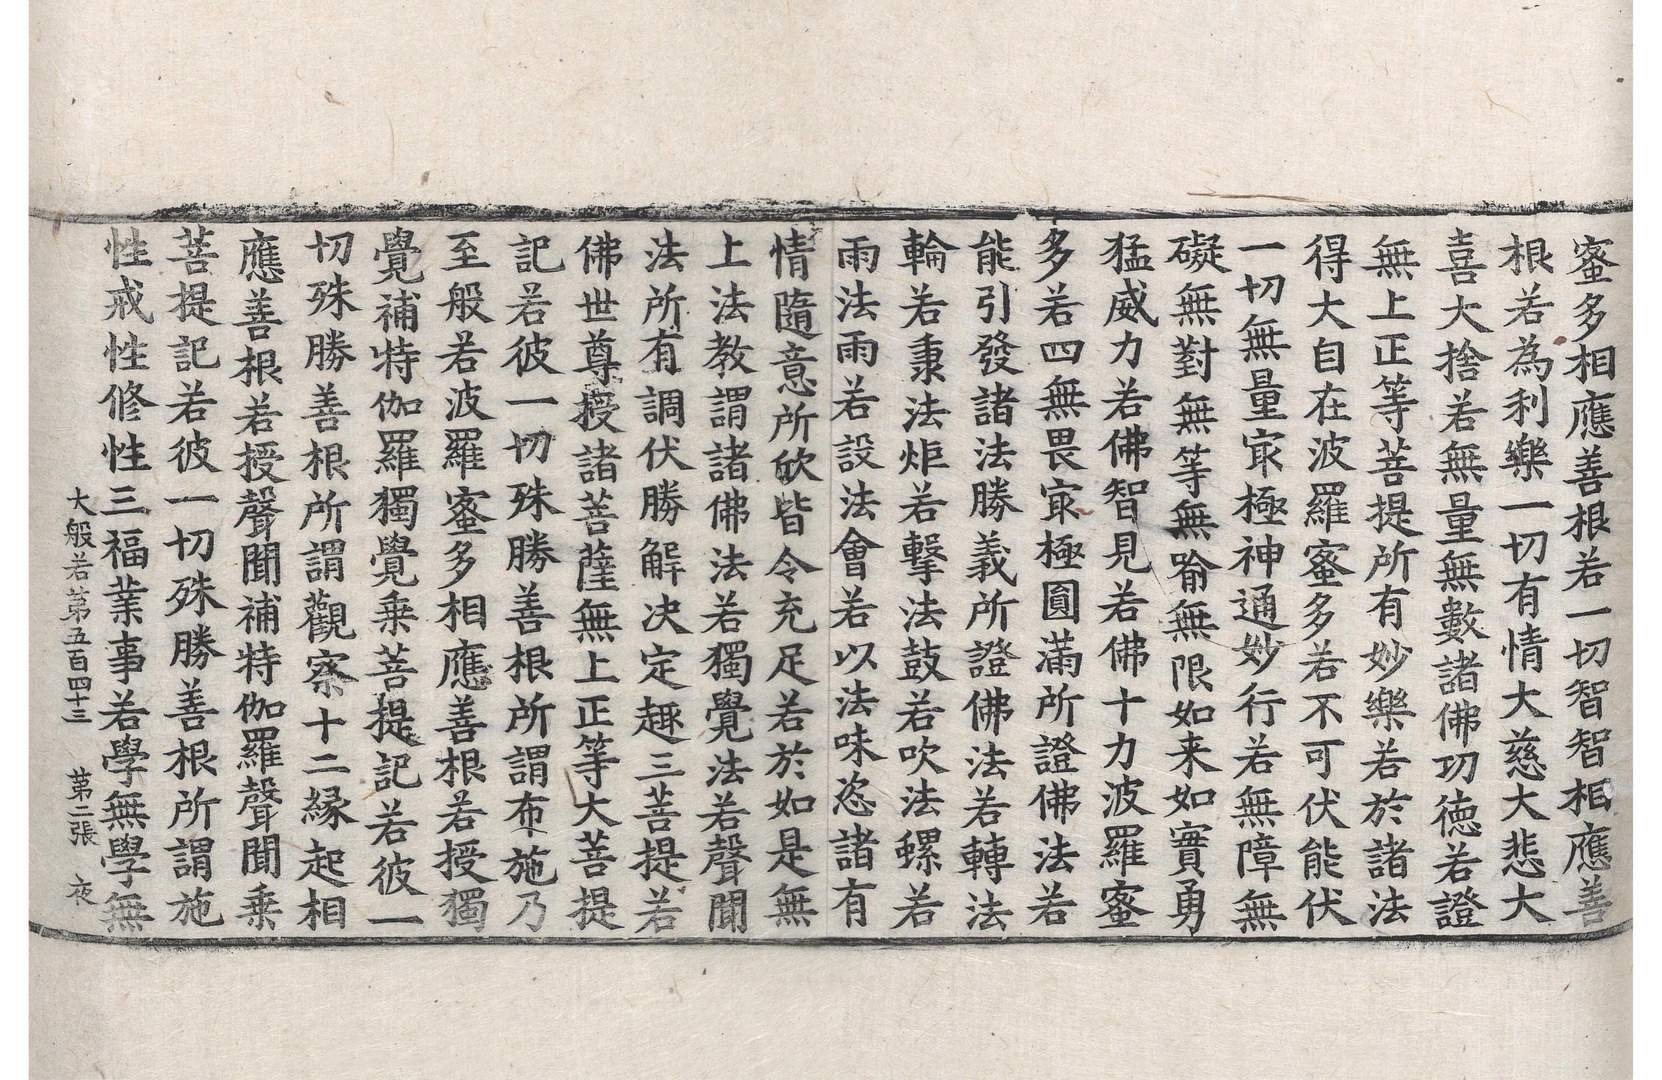 蜜多相應善根若一切智智相應善
根若為利樂一切有情大慈大悲大
喜大捨若無量無數諸佛功德若證
無上正等菩提所有妙樂若於諸法
得大自在波羅蜜多若不可伏能伏
一切無量冣極神通妙行若無障無
礙無對無等無喻無限如来如實勇
猛威力若佛智見若佛十力波羅蜜
多若四無畏冣極圓滿所證佛法若
能引發諸法勝義所證佛法若轉法
輪若秉法炬若擊法鼓若吹法螺若
雨法雨若設法會若以法味恣諸有
情隨意所欣皆令充足若於如是無
上法教謂諸佛法若獨覺法若聲聞
法所有調伏勝解決定趣三菩提若
佛世尊授諸菩薩無上正等大菩提
記若彼一切殊勝善根所謂布施乃
至般若波羅蜜多相應善根若授獨
覺補特伽羅獨覺乗菩提記若彼一
切殊勝善根所謂觀察十二緣起相
應善根若授聲聞補特伽羅聲聞乗
菩提記若彼一切殊勝善根所謂施
性戒性修性三福業事若學無學無
大般若第五百四十三 第二張 夜